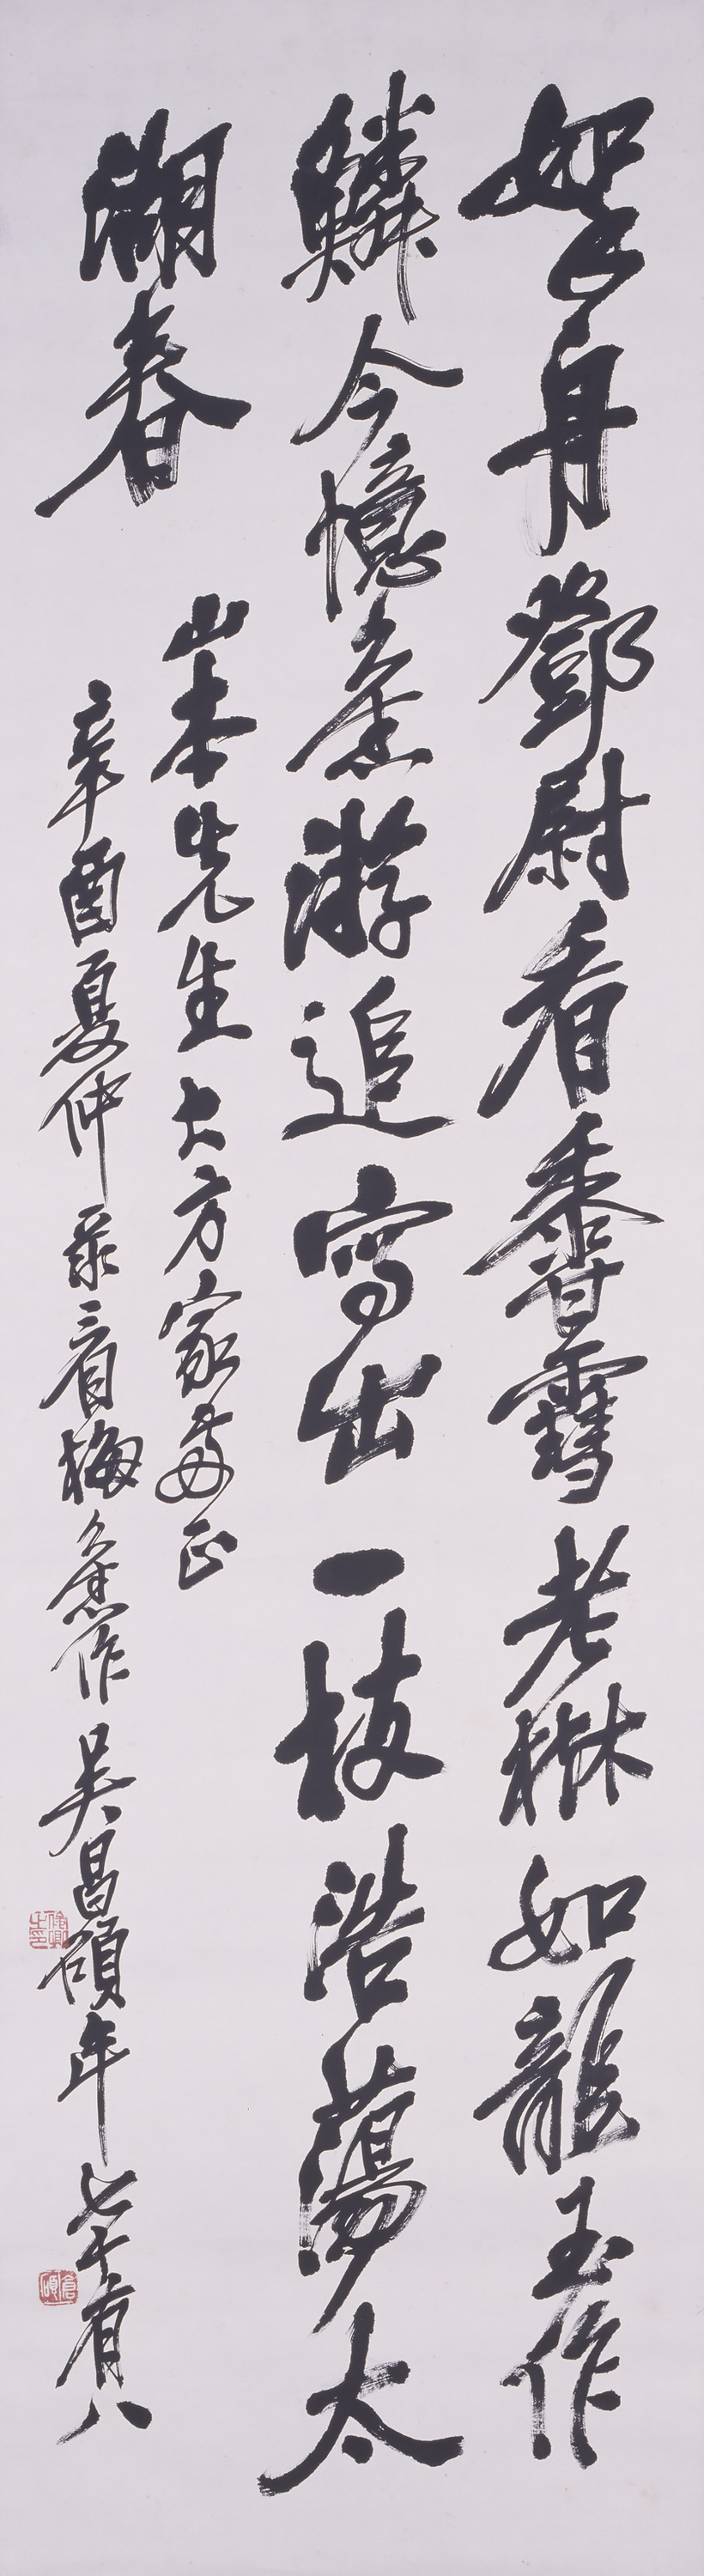 挐舟鄧尉看香雪老如龍玉作
鱗今憶舊游追寫出一枝浩蕩太
湖春
山本先生大方家屬正
辛酉夏仲录看梅舊作吳昌碩年七十有八
俊卿之印
倉碩